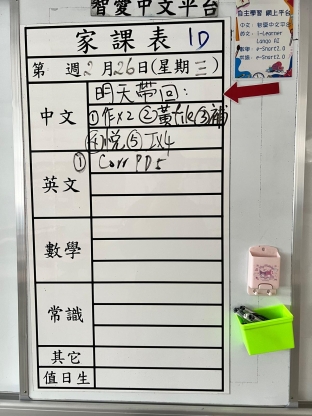 智愛中文平台
自主學習 網上平台
中文：智愛中文平台
英文：i-Learner
Lango AI
數學：e-Smart2.0
常識：e-Smart2.0
家課表 1D
第 週 2月26日(星期三)
中文
明天帶回：
①作x2 ②黃file ③補
④悅 ⑤工x4
英文
① Corr PD5
數學
常識
其它
值日生